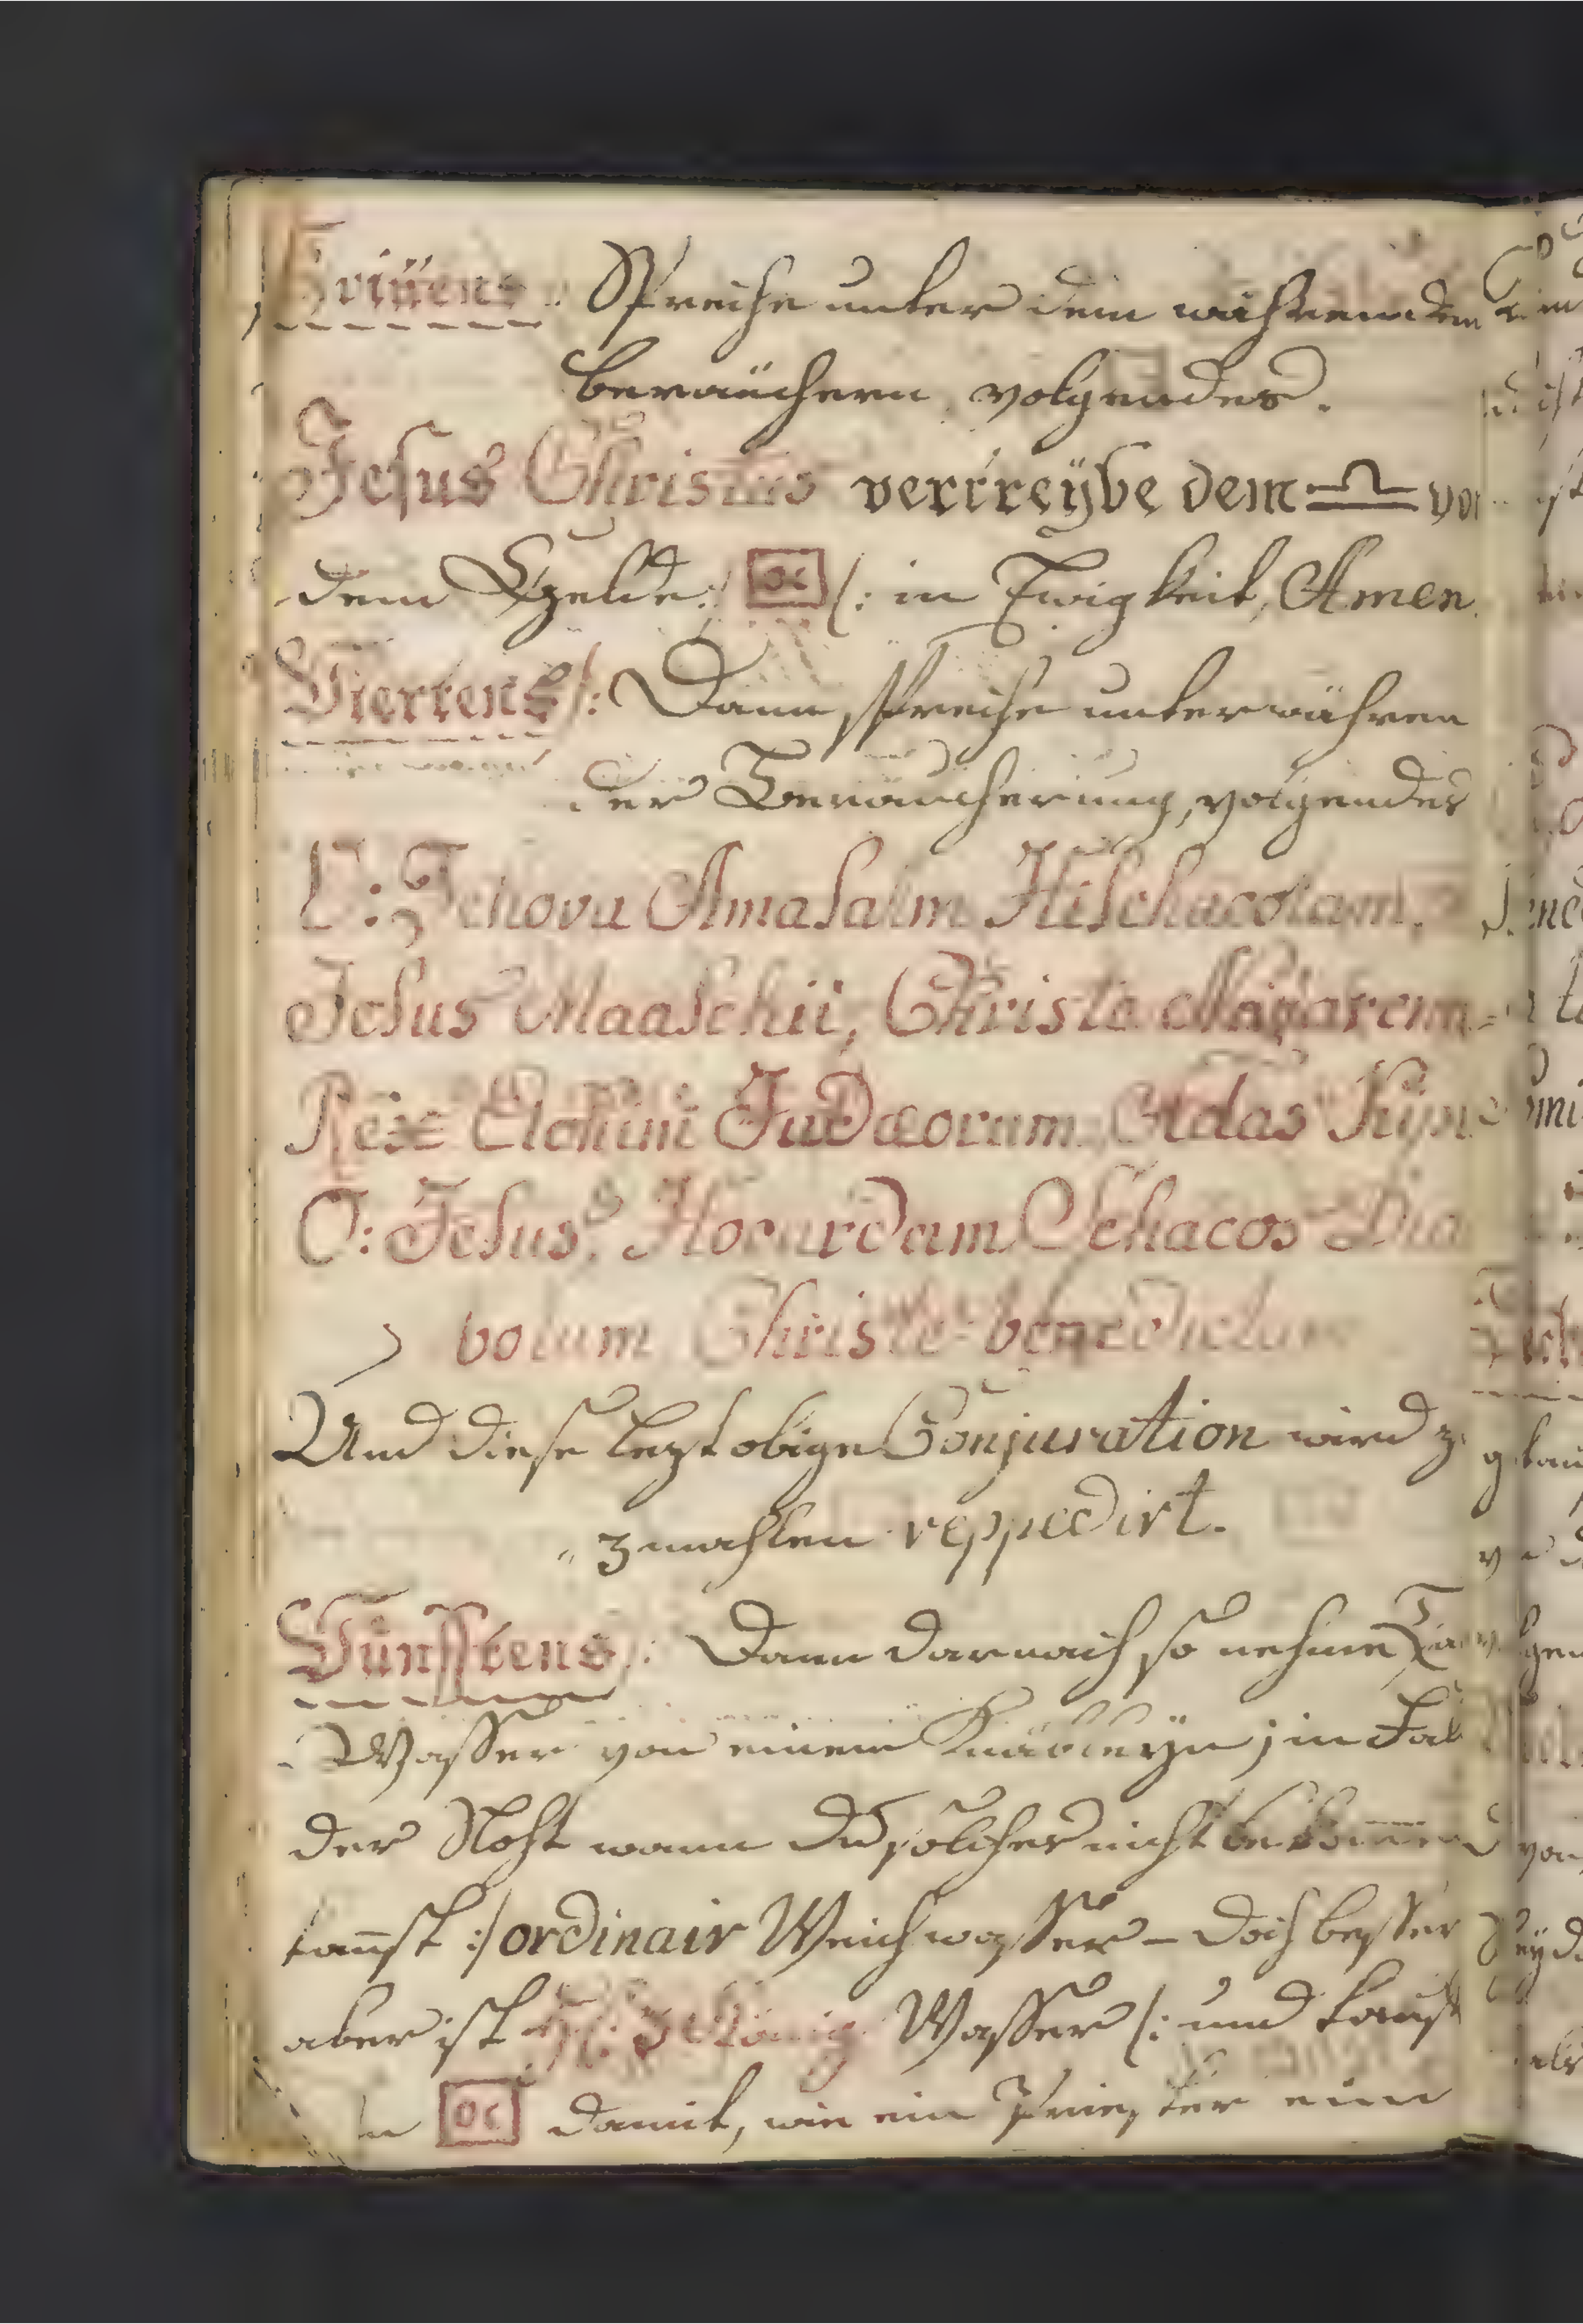 Drittens Spreche unter dem wehrenden
beräuchern, volgendes.
Jesus Christus vertreybe dem ♎ von
dem Gelde :/ /: in Ewigkeit, Amen.
Viertens /: Dann spreche unterwähren
der Beräucherung, volgendes
O: Jehova Amasalm Hischacolam,
Jesus Maaschii, Christe
Rex Elohim Judæorum, Adas
O: Jesus, Schacos Dia
bolum Christe benedictum
Und diese lezt obige Conjuration wird
3 mahlen reppedirt.
Fünfftens /: Dann darnach so nehme
Wasser von einem Knäbleyn; in Fal
der Noht wann du solches nicht bekommen
kanst :/ ordinair Weichwasser – doch besser
aber ist Hl: 3 König Wasser /: und tauf
damit, wie ein Priester ein